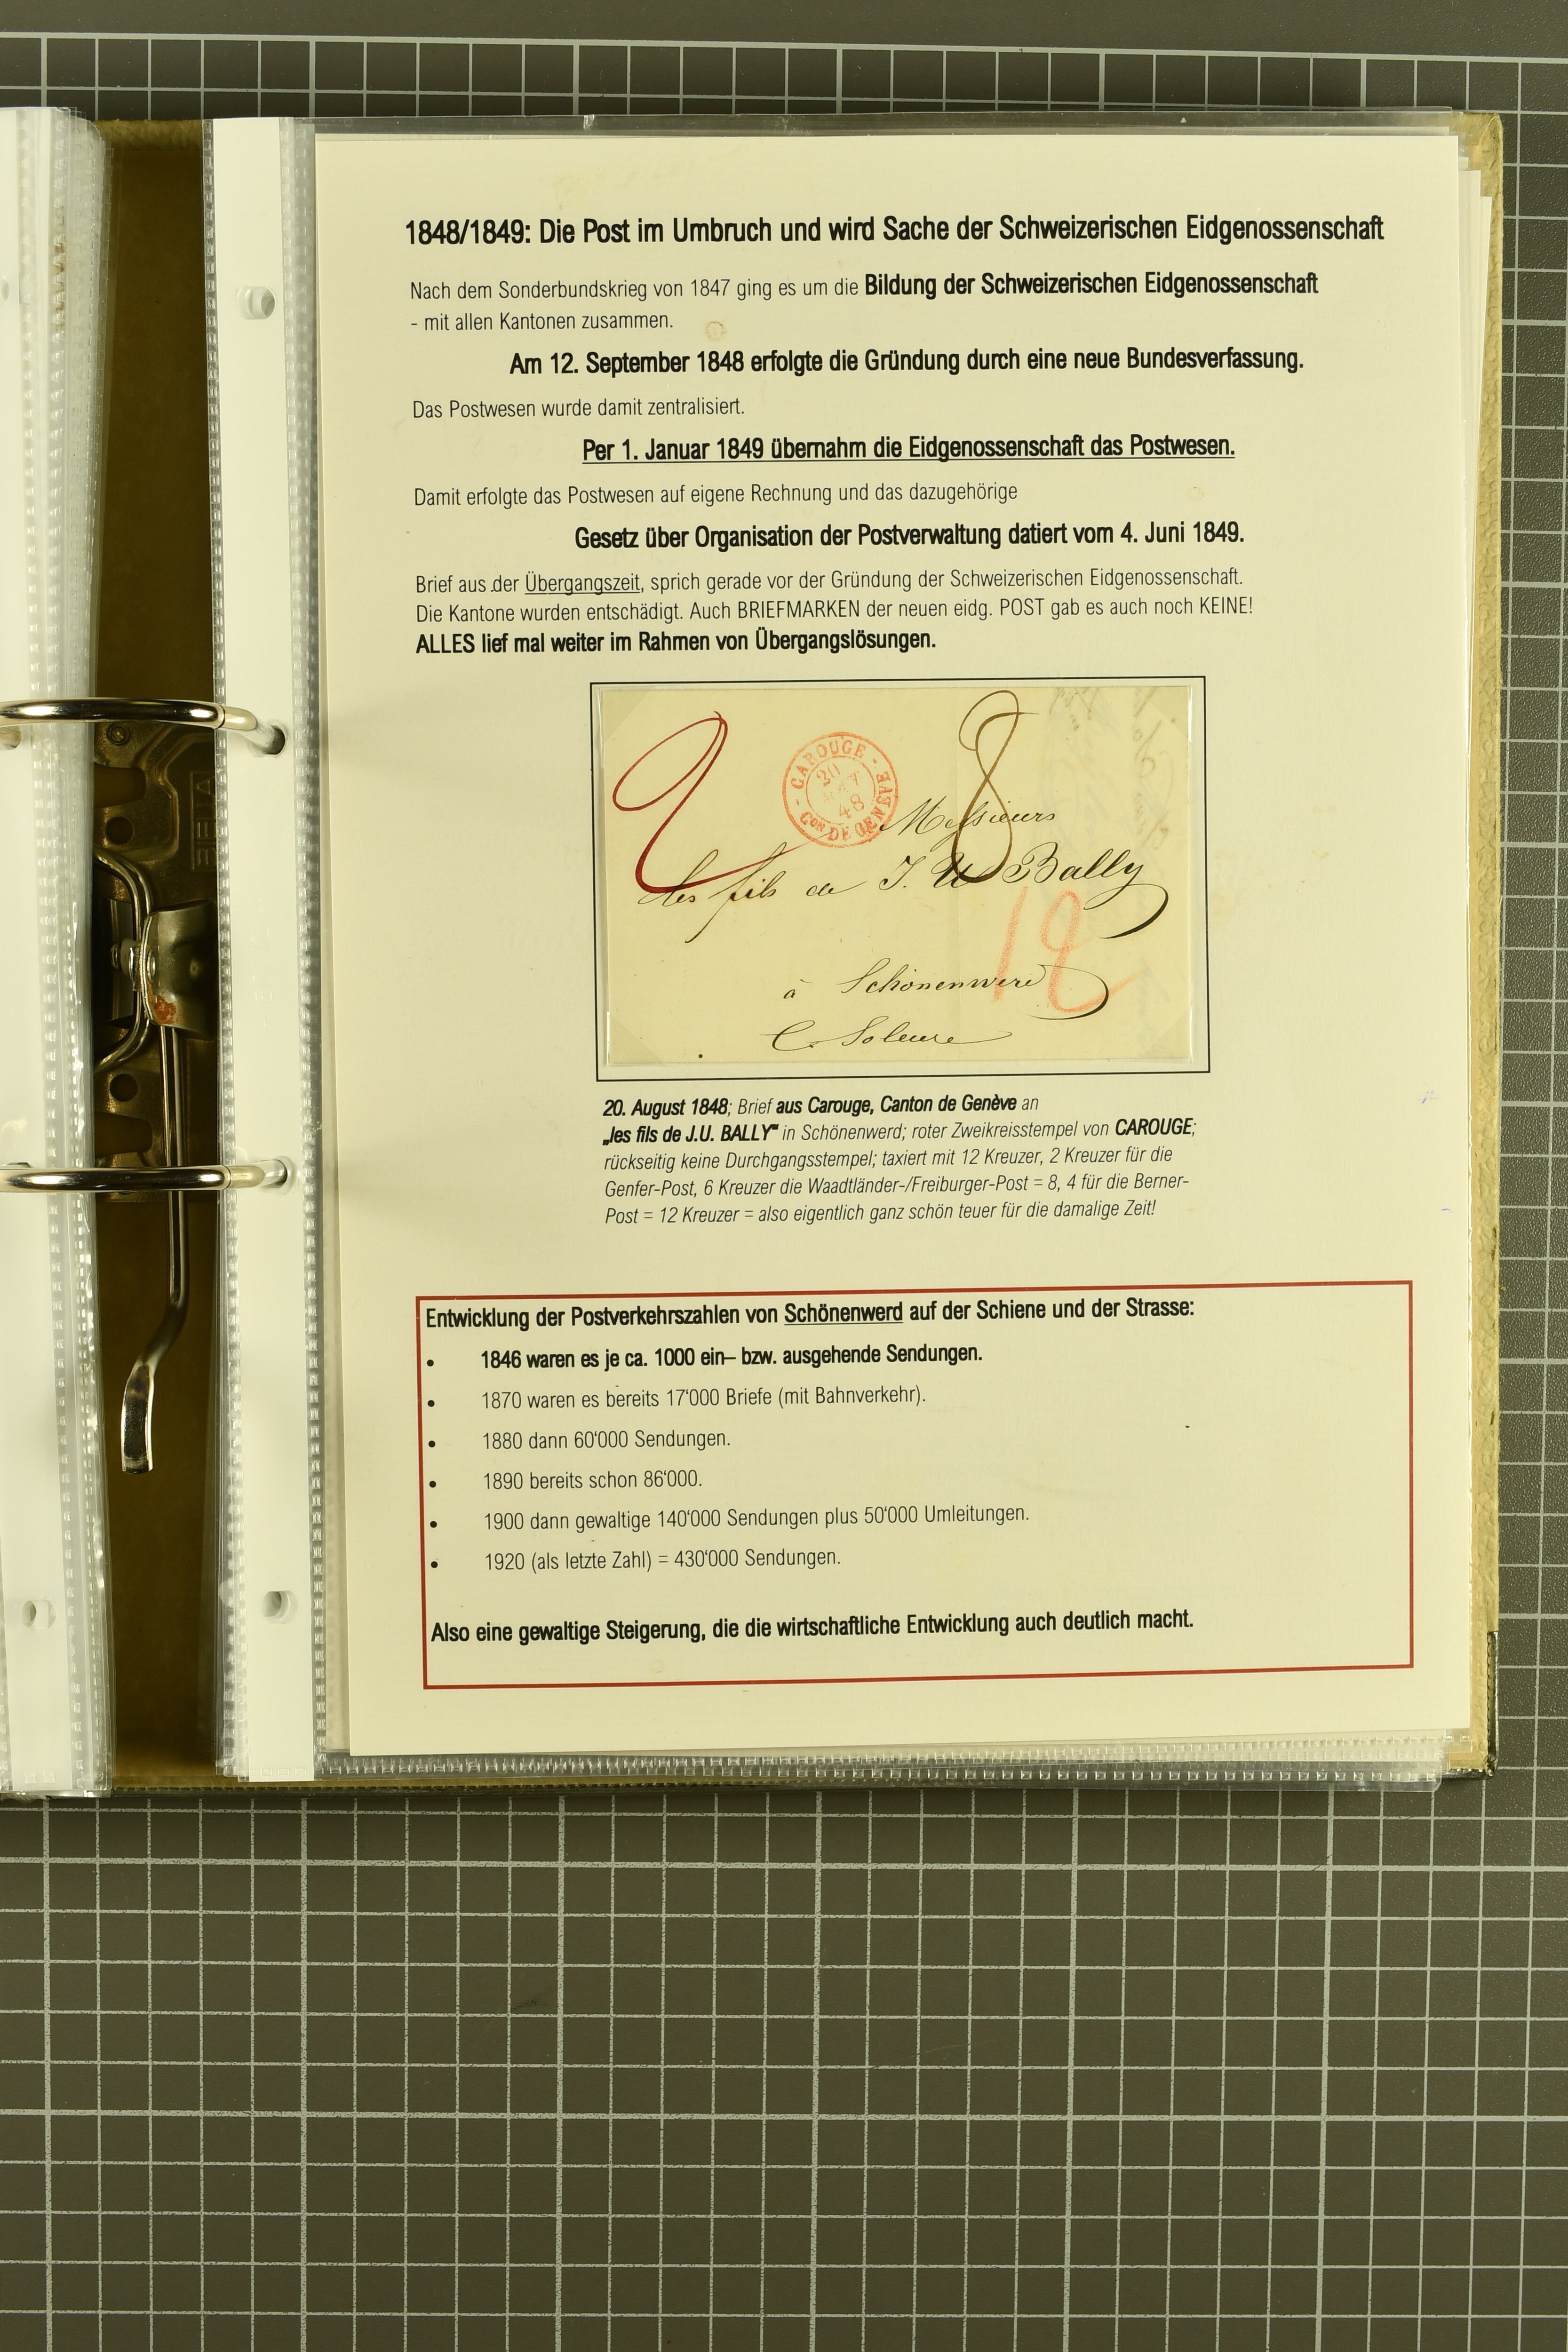 1848/1849: Die Post im Umbruch und wird Sache der Schweizerischen Eidgenossenschaft
Nach dem Sonderbundskrieg von 1847 ging es um die Bildung der Schweizerischen Eidgenossenschaft
- mit allen Kantonen zusammen.
Am 12. September 1848 erfolgte die Gründung durch eine neue Bundesverfassung.
Das Postwesen wurde damit zentralisiert.
Per 1. Januar 1849 übernahm die Eidgenossenschaft das Postwesen.
Damit erfolgte das Postwesen auf eigene Rechnung und das dazugehörige
Gesetz über Organisation der Postverwaltung datiert vom 4. Juni 1849.
Brief aus der Übergangszeit, sprich gerade vor der Gründung der Schweizerischen Eidgenossenschaft.
Die Kantone wurden entschädigt. Auch BRIEFMARKEN der neuen eidg. POST gab es auch noch KEINE!
ALLES lief mal weiter im Rahmen von Übergangslösungen.
2
8
CAROUGE
20
48
Con DE GENÈVE
Messieurs
les fils de J. U Bally
12
à Schönenwerd
C. Soleure
20. August 1848; Brief aus Carouge, Canton de Genève an
„les fils de J.U. BALLY" in Schönenwerd; roter Zweikreisstempel von CAROUGE;
rückseitig keine Durchgangsstempel; taxiert mit 12 Kreuzer, 2 Kreuzer für die
Genfer-Post, 6 Kreuzer die Waadtländer-/Freiburger-Post = 8, 4 für die Berner-
Post = 12 Kreuzer = also eigentlich ganz schön teuer für die damalige Zeit!
Entwicklung der Postverkehrszahlen von Schönenwerd auf der Schiene und der Strasse:
• 1846 waren es je ca. 1000 ein– bzw. ausgehende Sendungen.
• 1870 waren es bereits 17'000 Briefe (mit Bahnverkehr).
• 1880 dann 60'000 Sendungen.
• 1890 bereits schon 86'000.
• 1900 dann gewaltige 140'000 Sendungen plus 50'000 Umleitungen.
• 1920 (als letzte Zahl) = 430'000 Sendungen.
Also eine gewaltige Steigerung, die die wirtschaftliche Entwicklung auch deutlich macht.